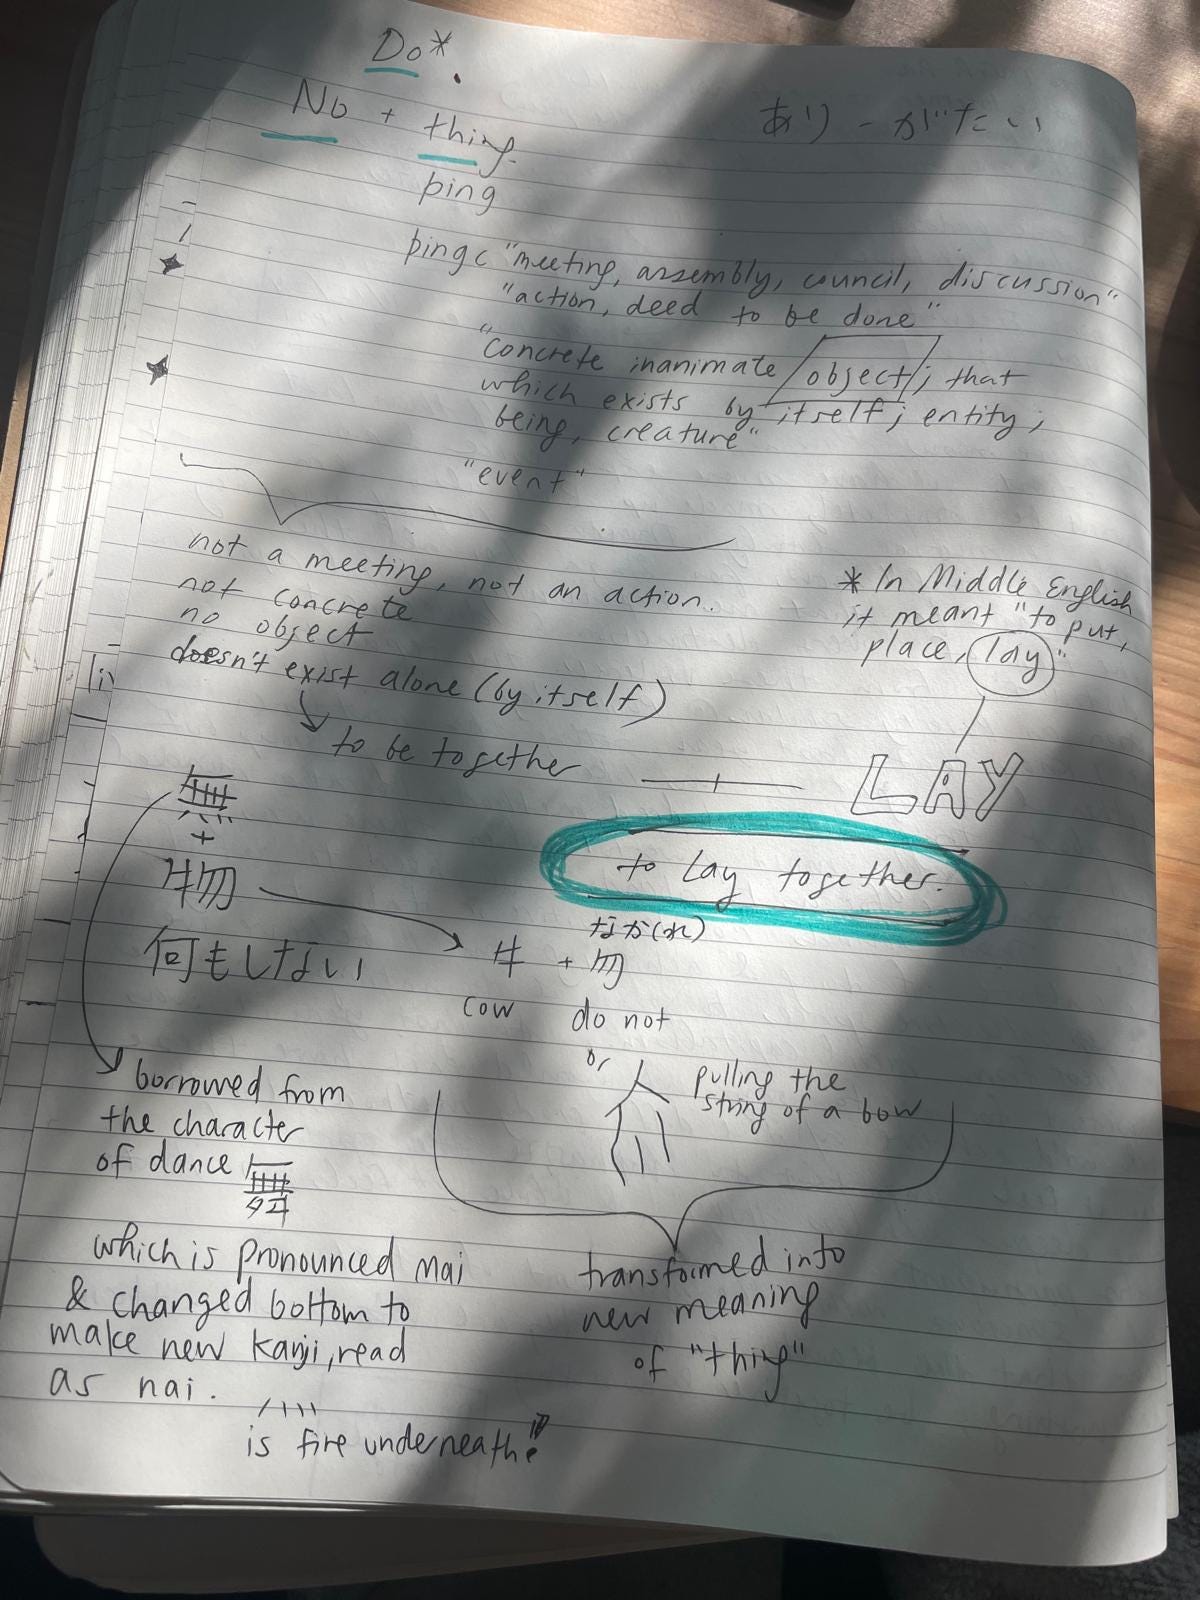 Do*.
No + thing
あり-がたい
þing
þing c "meeting, assembly, council, discussion"
"action, deed to be done"
"concrete inanimate object; that
which exists by itself; entity;
being, creature"
"event"
not a meeting, not an action.
not concrete
no object
doesn't exist alone (by itself)
to be together
* In Middle English
it meant "to put,
place, lay"
LAY
to lay together.
無
+
物
何もしない
なか(れ)
牛 + 勿
cow do not
or
pulling the
string of a bow
transformed into
new meaning
of "thing"
borrowed from
the character
of dance 舞
which is pronounced mai
& changed bottom to
make new kanji, read
as nai.
灬
is fire underneath!?